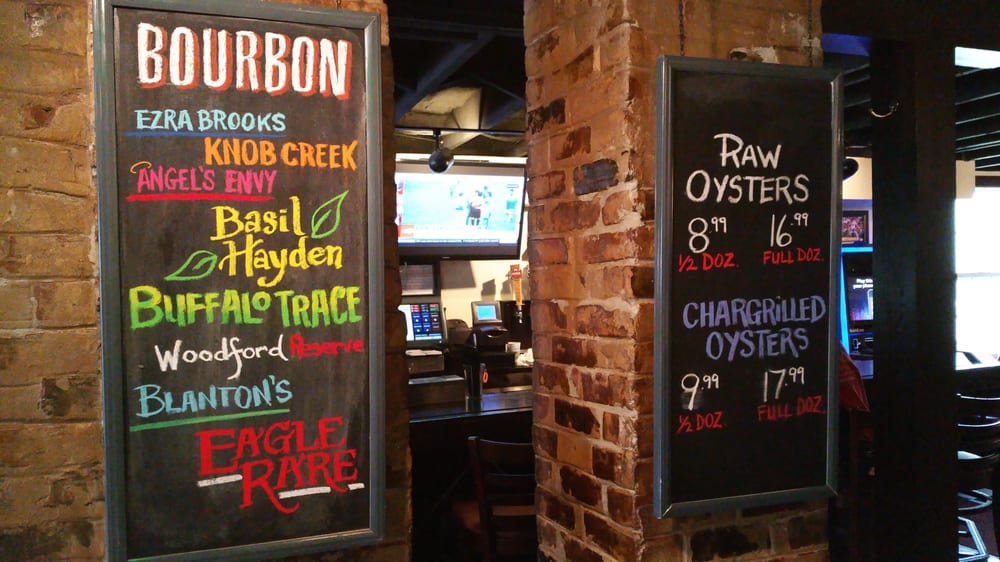 BOURBON
EZRA BROOKS
KNOB CREEK
ANGEL'S ENVY
Basil
Hayden
BUFFALO TRACE
Woodford Reserve
BLANTON'S
EAGLE
RARE
RAW
OYSTERS
8.99 16.99
1/2 DOZ. FULL DOZ.
CHARGRILLED
OYSTERS
9.99 17.99
1/2 DOZ. FULL DOZ.